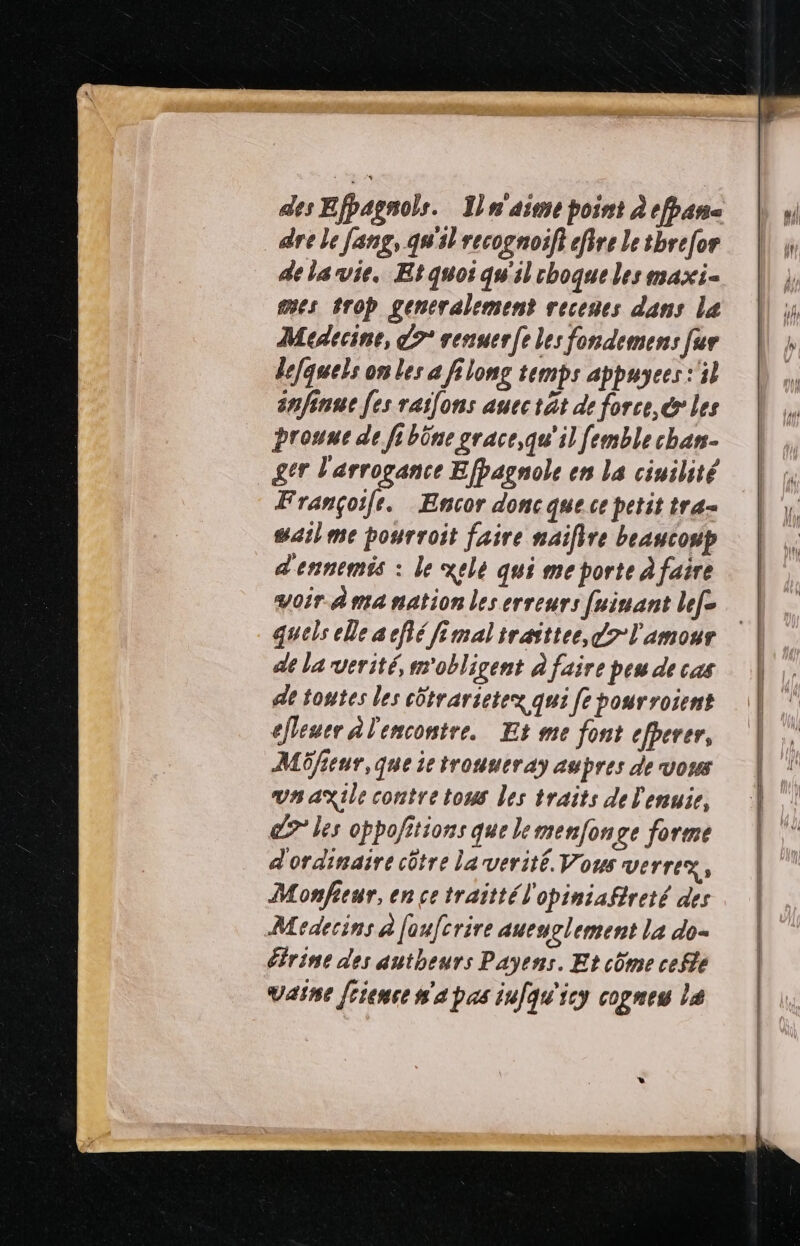 des Eſpagnols. Il n'aime point à eſpan-
dre le ſang, qu'il recognoiſt eſtre le threſor
de la vie. Et quoi qu'il choque les maxi-
mes trop generalement receues dans la
Medecine, & renuerſe les fondemens ſur
leſquels on les a ſi long temps appuyees : il
inſinue ſes raiſons auec tãt de force, & les
prouue de ſi bõne grace, qu'il ſemble chan-
ger l'arrogance Eſpagnole en la ciuilité
Françoiſe. Encor donc que ce petit tra-
uail me pourroit faire naiſtre beaucoup
d'ennemis : le zele qui me porte à faire
voir à ma nation les erreurs ſuiuant leſ-
quels elle a eſté ſi mal traittee, & l'amour
de la verité, m'obligent à faire peu de cas
de toutes les cõtrarietez qui ſe pourroient
eſleuer à l'encontre. Et me font eſperer,
Mõſieur, que ie trouueray aupres de vous
vn azile contre tous les traits de l'enuie,
& les oppoſitions que le menſonge forme
d'ordinaire cõtre la verité. Vous verrez,
Monſieur, en ce traitté l'opiniaſtreté des
Medecins à ſouſcrire aueuglement la do-
ctrine des autheurs Payens. Et cõme ceſte
vaine ſcience n'a pas iuſqu'icy cogneu la